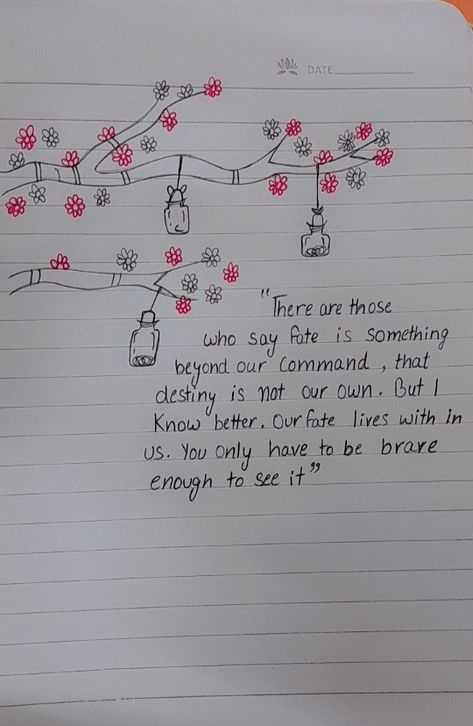 DATE
"There are those
who say fate is something
beyond our command, that
destiny is not our own. But I
Know better. Our fate lives with in
us. You only have to be brave
enough to see it"